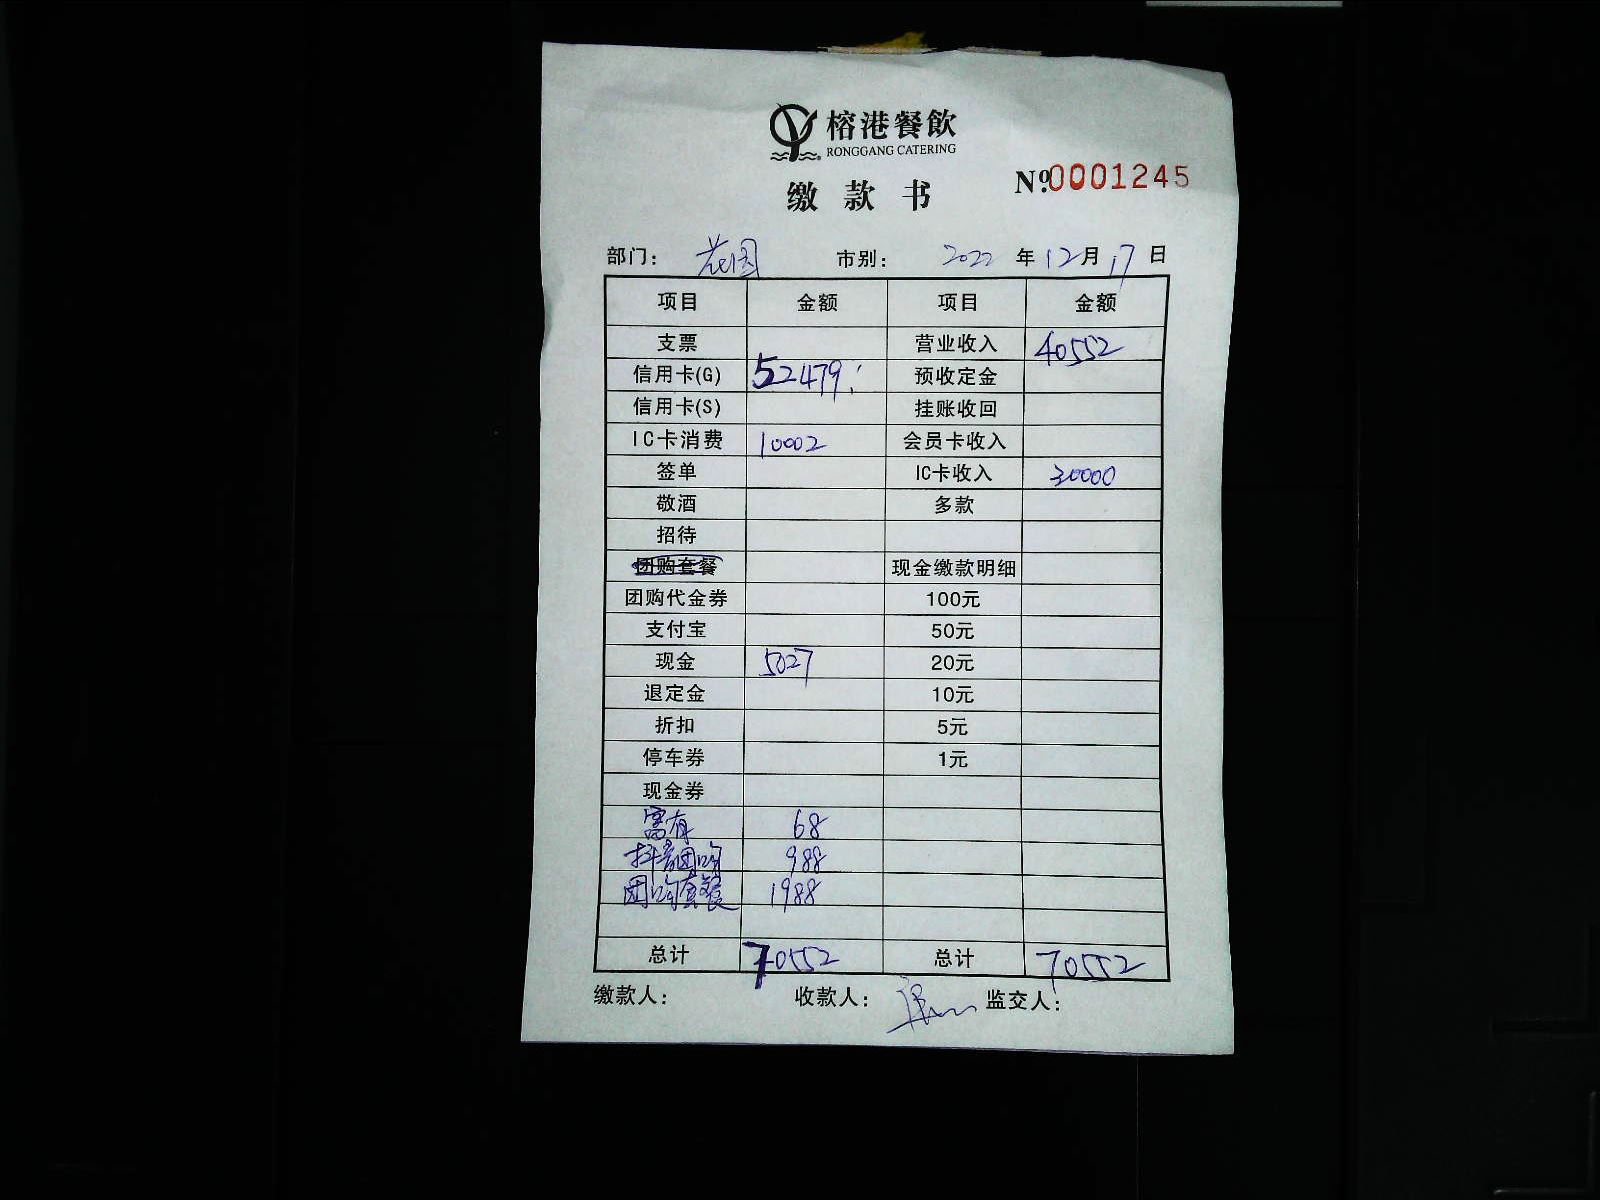 榕港餐飲
RONGGANG CATERING
缴款书 Nº.0001245
部门: 花园 市别: 2022 年 12 月 17 日
项目 金额 项目 金额
支票 营业收入 40552
信用卡(G) 52479 预收定金
信用卡(S) 挂账收回
IC卡消费 10002 会员卡收入
签单 IC卡收入 30000
敬酒 多款
招待
团购套餐 现金缴款明细
团购代金券 100元
支付宝 50元
现金 5027 20元
退定金 10元
折扣 5元
停车券 1元
现金券
68
抖音团购 988
团购套餐 1988
总计 70552 总计 70552
缴款人: 收款人: 监交人: